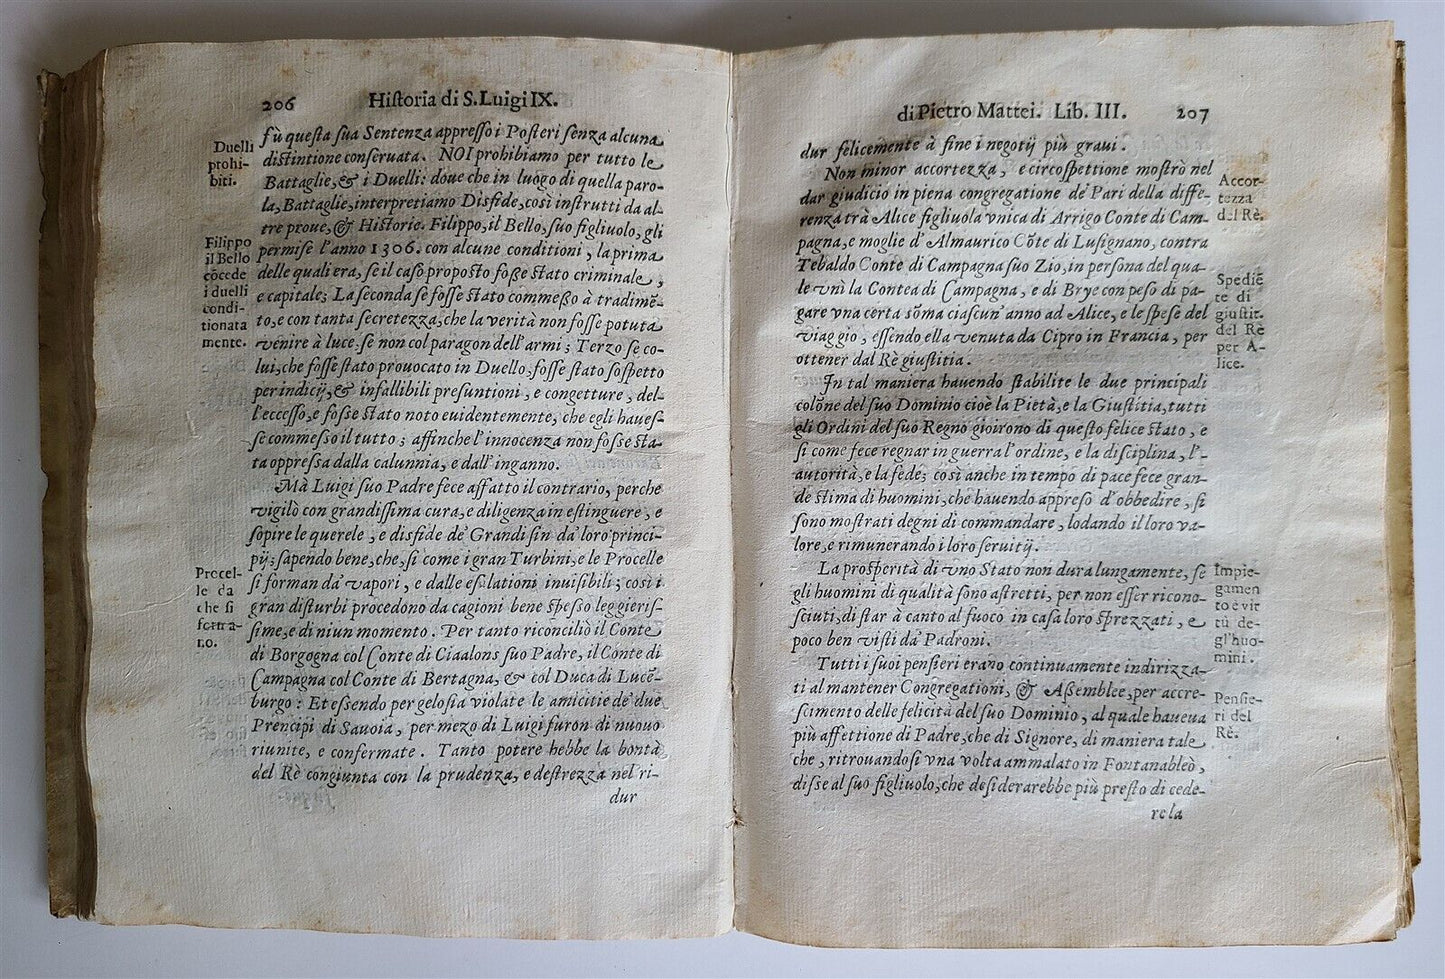 206 Hiſtoria di S. Luigi IX.
Duelli
prohi-
biti.
fù queſta ſua Sentenza appreſſo i Poſteri ſenza alcuna
diſtintione conſeruata. NOI prohibiamo per tutto le
Battaglie, & i Duelli: doue che in luogo di quella paro-
la, Battaglie, interpretiamo Disfide, così inſtrutti da al-
tre proue, & Hiſtorie. Filippo, il Bello, ſuo figliuolo, gli
Filippo
il Bello
cõcede
i duelli
condi-
tionata
mente.
permiſe l'anno 1306. con alcune conditioni, la prima
delle quali era, ſe il caſo propoſto foſſe ſtato criminale,
e capitale; La ſeconda ſe foſſe ſtato commeſſo à tradimẽ-
to, e con tanta ſecretezza, che la verità non foſſe potuta
venire à luce, ſe non col paragon dell'armi; Terzo ſe co-
lui, che foſſe ſtato prouocato in Duello, foſſe ſtato ſoſpetto
per indicij, & infallibili preſuntioni, e congetture, del-
l'ecceſſo, e foſſe ſtato noto euidentemente, che egli haueſ-
ſe commeſſo il tutto; affinche l'innocenza non foſſe ſta-
ta oppreſſa dalla calunnia, e dall'inganno.
Mà Luigi ſuo Padre fece affatto il contrario, perche
vigilò con grandiſſima cura, e diligenza in eſtinguere, e
ſopire le querele, e disfide de' Grandi ſin da' loro princi-
pij; ſapendo bene, che, ſi come i gran Turbini, e le Procelle
Procel-
le da
che ſi
forma-
no.
ſi forman da' vapori, e dalle eſalationi inuiſibili; così i
gran diſturbi procedono da cagioni bene ſpeſſo leggieriſ-
ſime, e di niun momento. Per tanto riconciliò il Conte
di Borgogna col Conte di Ciaalons ſuo Padre, il Conte di
Campagna col Conte di Bertagna, & col Duca di Lucẽ-
burgo: Et eſſendo per geloſia violate le amicitie de' due
Prencipi di Sauoia, per mezo di Luigi furon di nuouo
riunite, e confermate. Tanto potere hebbe la bontà
del Rè congiunta con la prudenza, e deſtrezza nel ri-
dur
di Pietro Mattei. Lib. III. 207
dur felicemente à fine i negotij più graui.
Non minor accortezza, e circoſpettione moſtrò nel
dar giudicio in piena congregatione de' Pari della diffe-
renza trà Alice figliuola vnica di Arrigo Conte di Cam-
Accor-
tezza
del Rè.
pagna, e moglie d'Almaurico Cõte di Luſignano, contra
Tebaldo Conte di Campagna ſuo Zio, in perſona del qua-
le vnì la Contea di Campagna, e di Brye con peſo di pa-
gare vna certa ſõma ciaſcun'anno ad Alice, e le ſpeſe del
viaggio, eſſendo ella venuta da Cipro in Francia, per
ottener dal Rè giuſtitia.
Spediẽ
te di
giuſtit.
del Rè
per A-
lice.
In tal maniera hauendo ſtabilite le due principali
colõne del ſuo Dominio cioè la Pietà, e la Giuſtitia, tutti
gli Ordini del ſuo Regno gioirono di queſto felice ſtato, e
ſi come fece regnar in guerra l'ordine, e la diſciplina, l'-
autorità, e la fede; così anche in tempo di pace fece gran-
de ſtima di huomini, che hauendo appreſo d'obbedire, ſi
ſono moſtrati degni di commandare, lodando il loro va-
lore, e rimunerando i loro ſeruitij.
La proſperità di vno Stato non dura lungamente, ſe
gli huomini di qualità ſono aſtretti, per non eſſer ricono-
ſciuti, di ſtar à canto al fuoco in caſa loro ſprezzati, e
poco ben viſti da' Padroni.
Impie-
gamen
to e vir
tù de-
gl'huo-
mini.
Tutti i ſuoi penſieri erano continuamente indirizza-
ti al mantener Congregationi, & Aſſemblee, per accre-
ſcimento delle felicità del ſuo Dominio, al quale haueua
più affettione di Padre, che di Signore, di maniera tale
che, ritrouandoſi vna volta ammalato in Fontanableò,
diſſe al ſuo figliuolo, che deſiderarebbe più preſto di cede-
Penſie-
ri del
Rè.
re la